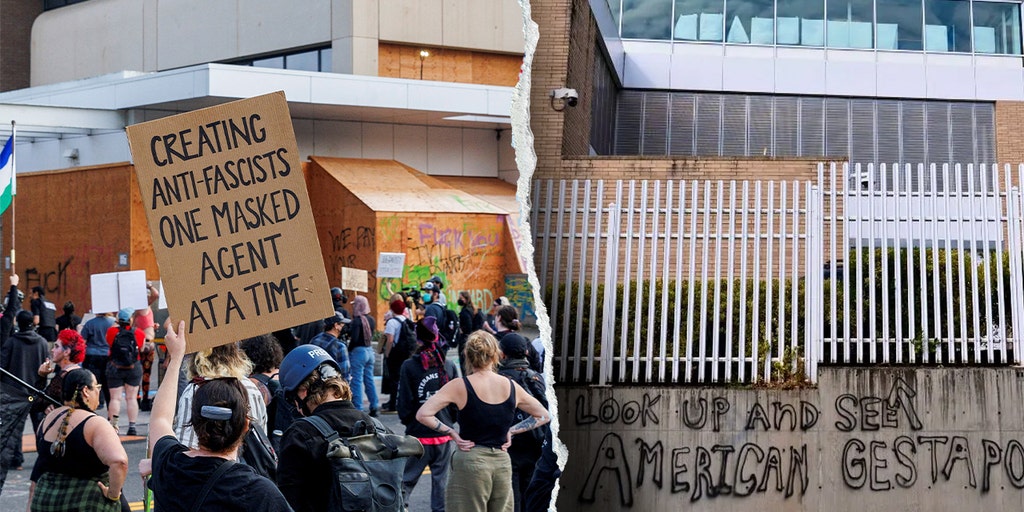 CREATING
ANTI-FASCISTS
ONE MASKED
AGENT
AT A TIME
FUCK YOU
WE PAY
YOUR
Fuck
LOOK UP AND SEE A
AMERICAN GESTAPO